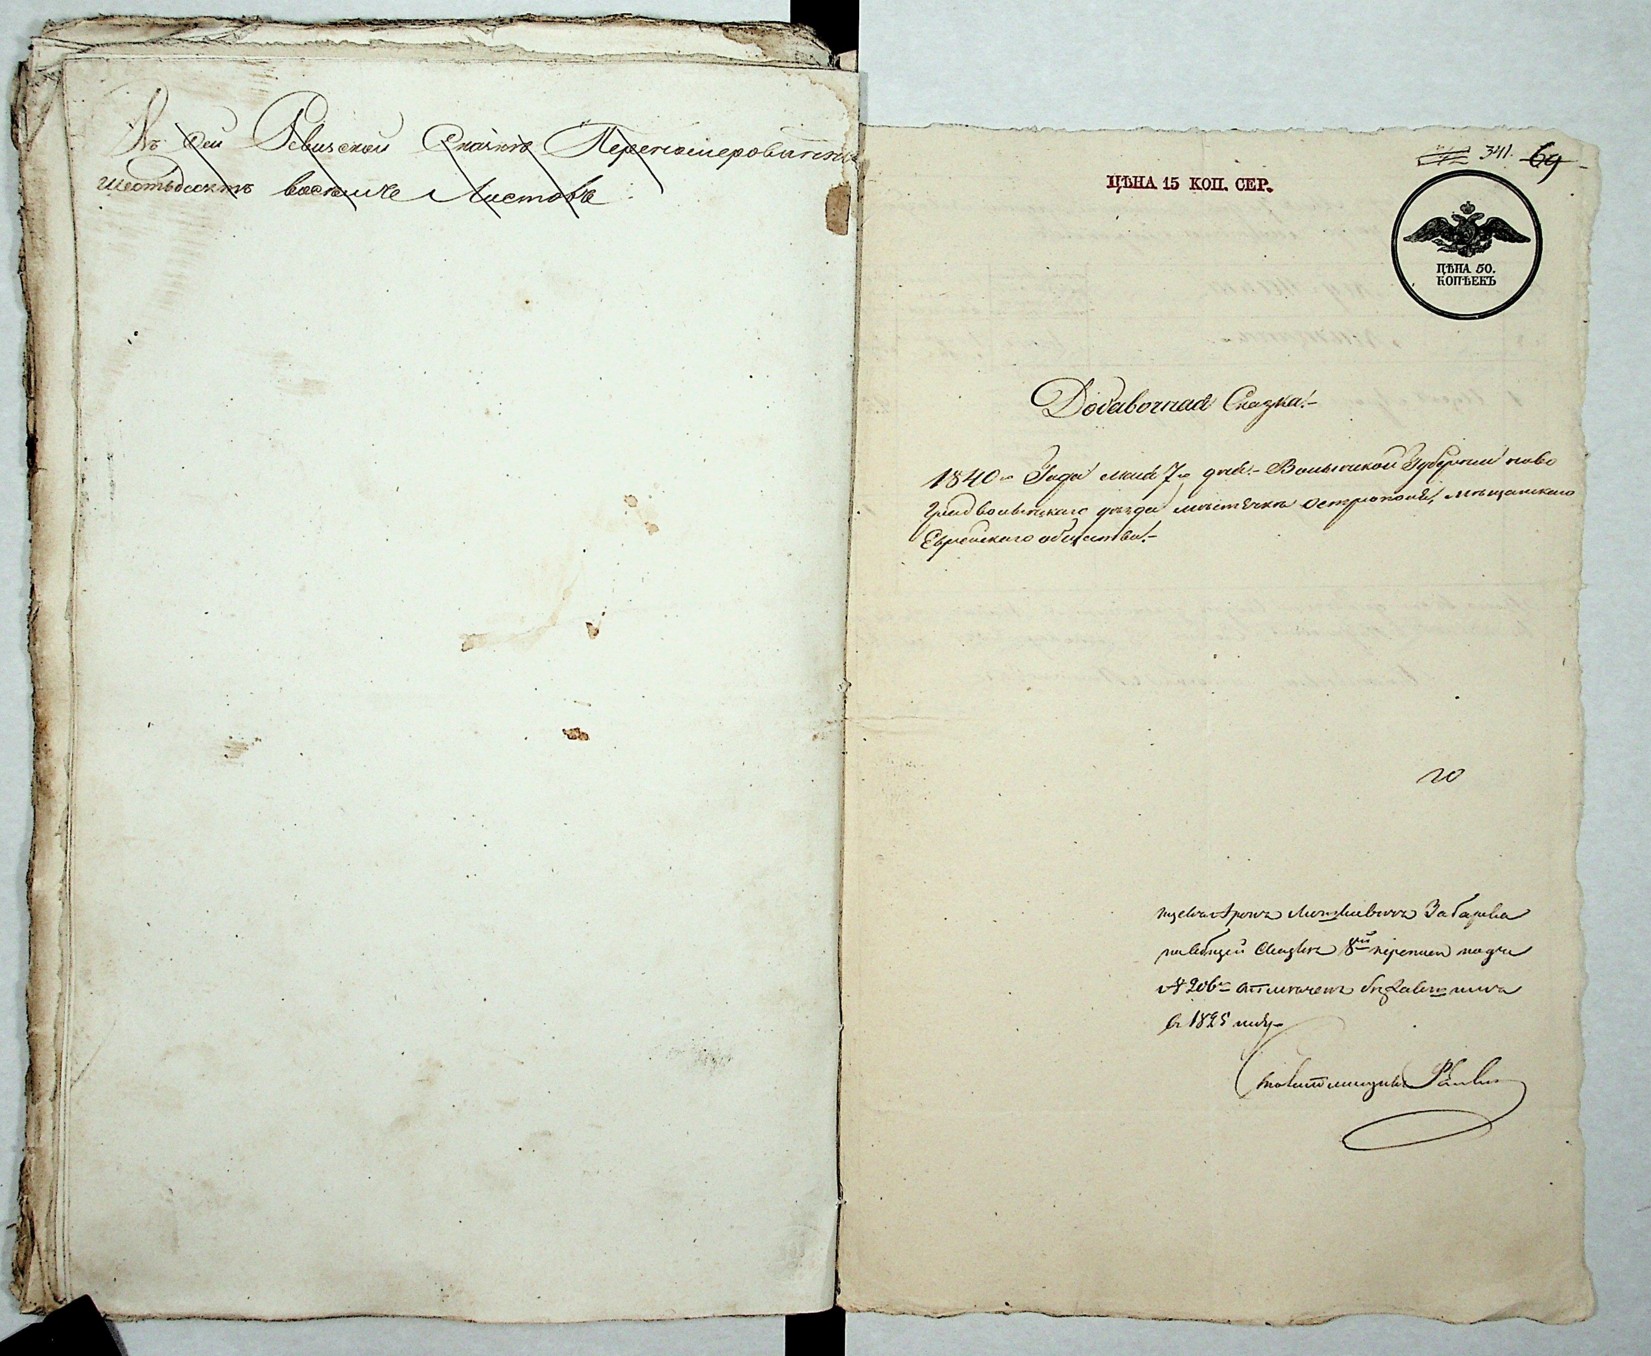 Въ сей Ревизской Сказки Перенумерованныхъ
шестьдесятъ восемь Листовъ
341. 69
ЦѢНА 15 КОП. СЕР.
ЦѢНА 50.
КОПѢЕКЪ
Добавочная Сказка!
1840го Года маия 7го дня. Волынской Губерніи ново
Градволынскаго уѣзда мѣстечка Остропопля, мѣщанскаго
Еврейскаго общества!
по
Мошковичъ
общей Сказки 8й переписи подъ
№ 206м отмеченъ
в 1825 году